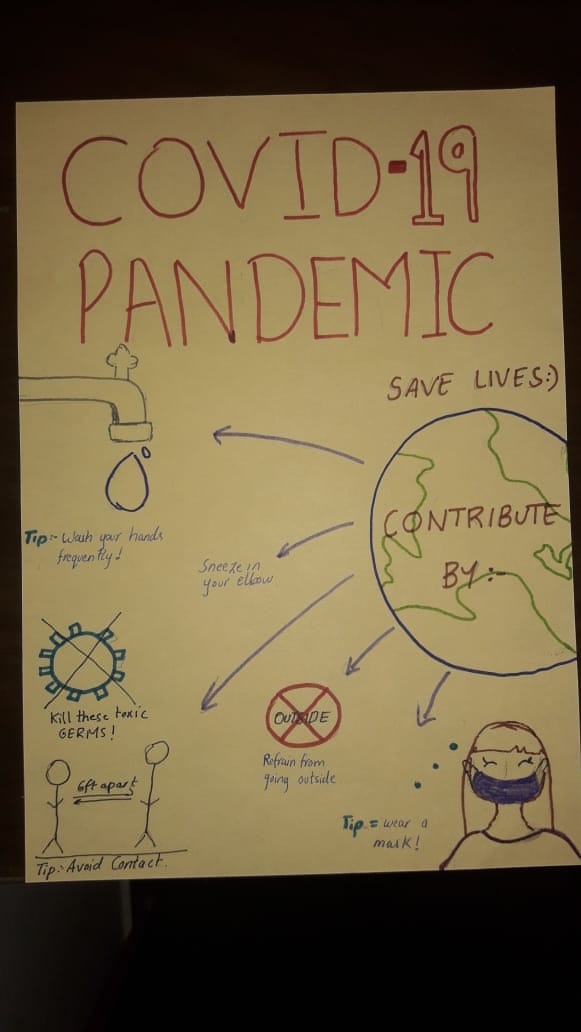 COVID-19
PANDEMIC
SAVE LIVES:)
CONTRIBUTE
BY:-
Tip:- Wash your hands
frequently!
Sneeze in
your elbow
Kill these toxic
GERMS!
OUTSIDE
Refrain from
going outside
6ft apart
Tip:- Avoid Contact.
Tip = wear a
mask!